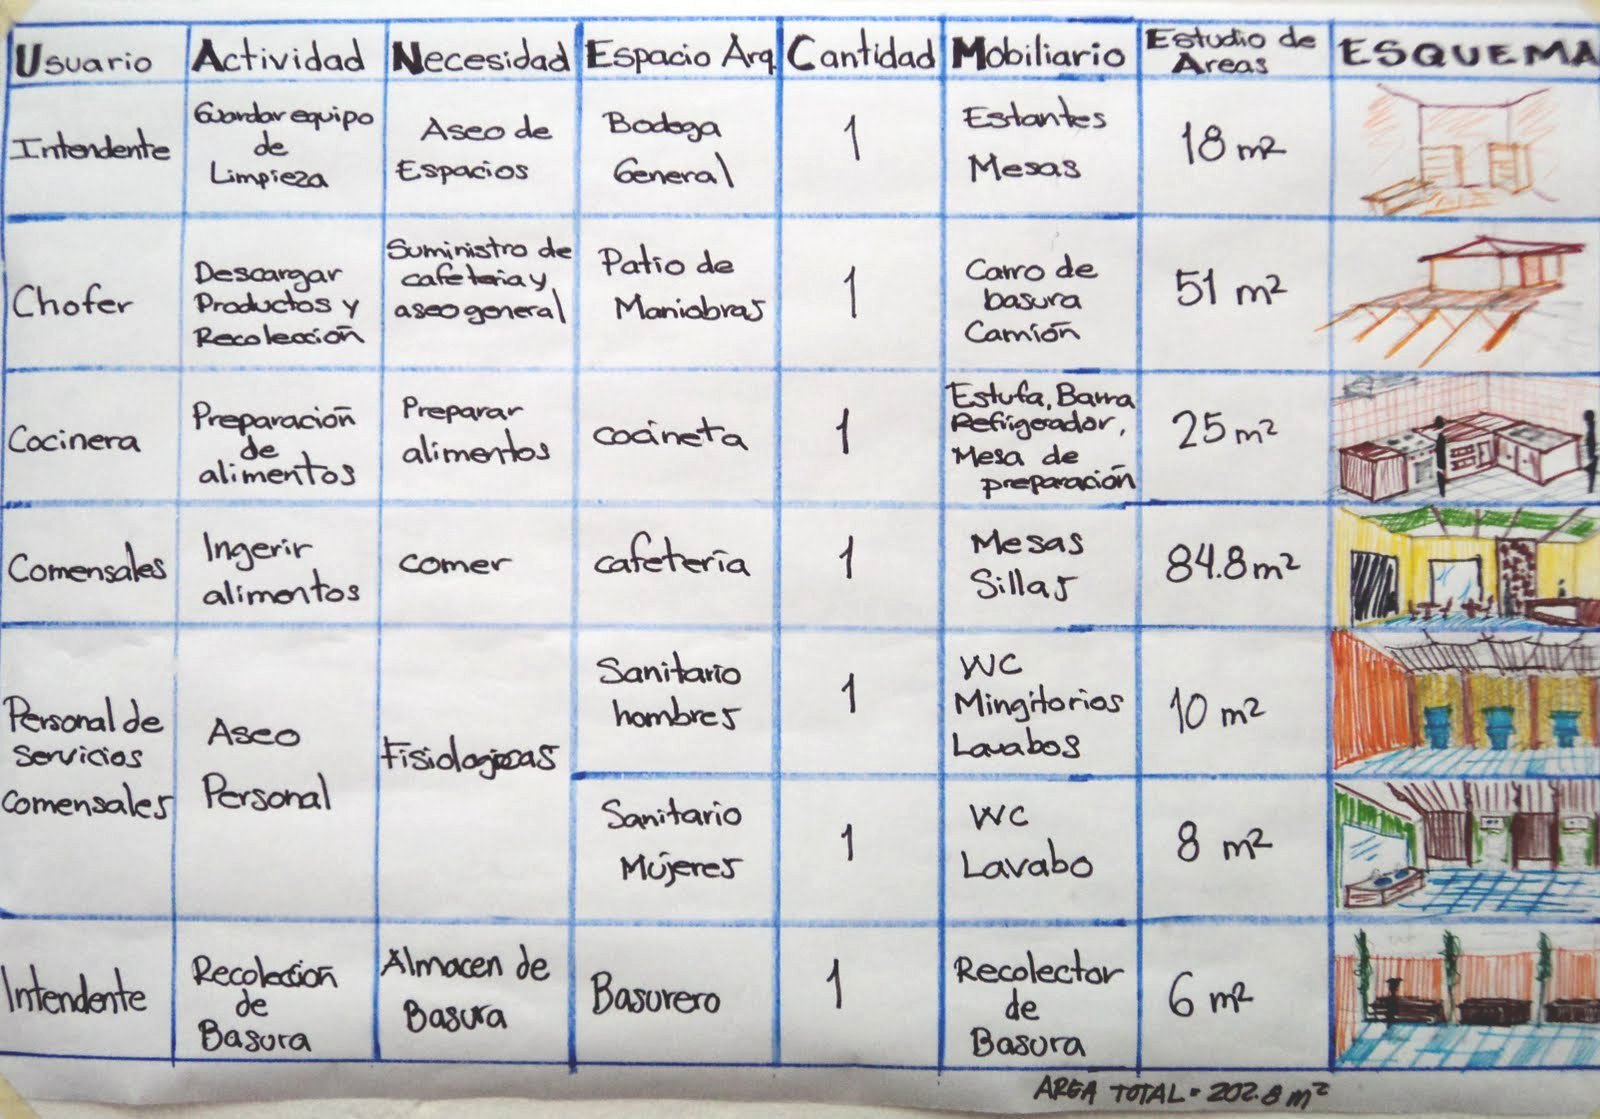 Usuario Actividad Necesidad Espacio Arq. Cantidad Mobiliario Estudio de Areas ESQUEMA
Intendente
Guardar equipo
de
Limpieza
Aseo de
Espacios
Bodega
General
1
Estantes
Mesas
18 m²
Chofer
Descargar
Productos y
Recolección
Suministro de
cafeteria y
aseo general
Patio de
Maniobras
1
Carro de
basura
Camión
51 m²
Cocinera
Preparación
de
alimentos
Preparar
alimentos
cocineta
1
Estufa, Barra
Refrigerador,
Mesa de
preparación
25 m²
Comensales
Ingerir
alimentos
comer
cafetería
1
Mesas
Sillas
84.8 m²
Personal de
Servicios
comensales
Aseo
Personal
Fisiologicas
Sanitario
hombres
1
WC
Mingitorios
Lavabos
10 m²
Sanitario
Mujeres
1
WC
Lavabo
8 m²
Intendente
Recolección
de
Basura
Almacen de
Basura
Basurero
1
Recolector
de
Basura
6 m²
AREA TOTAL = 202.8 m²